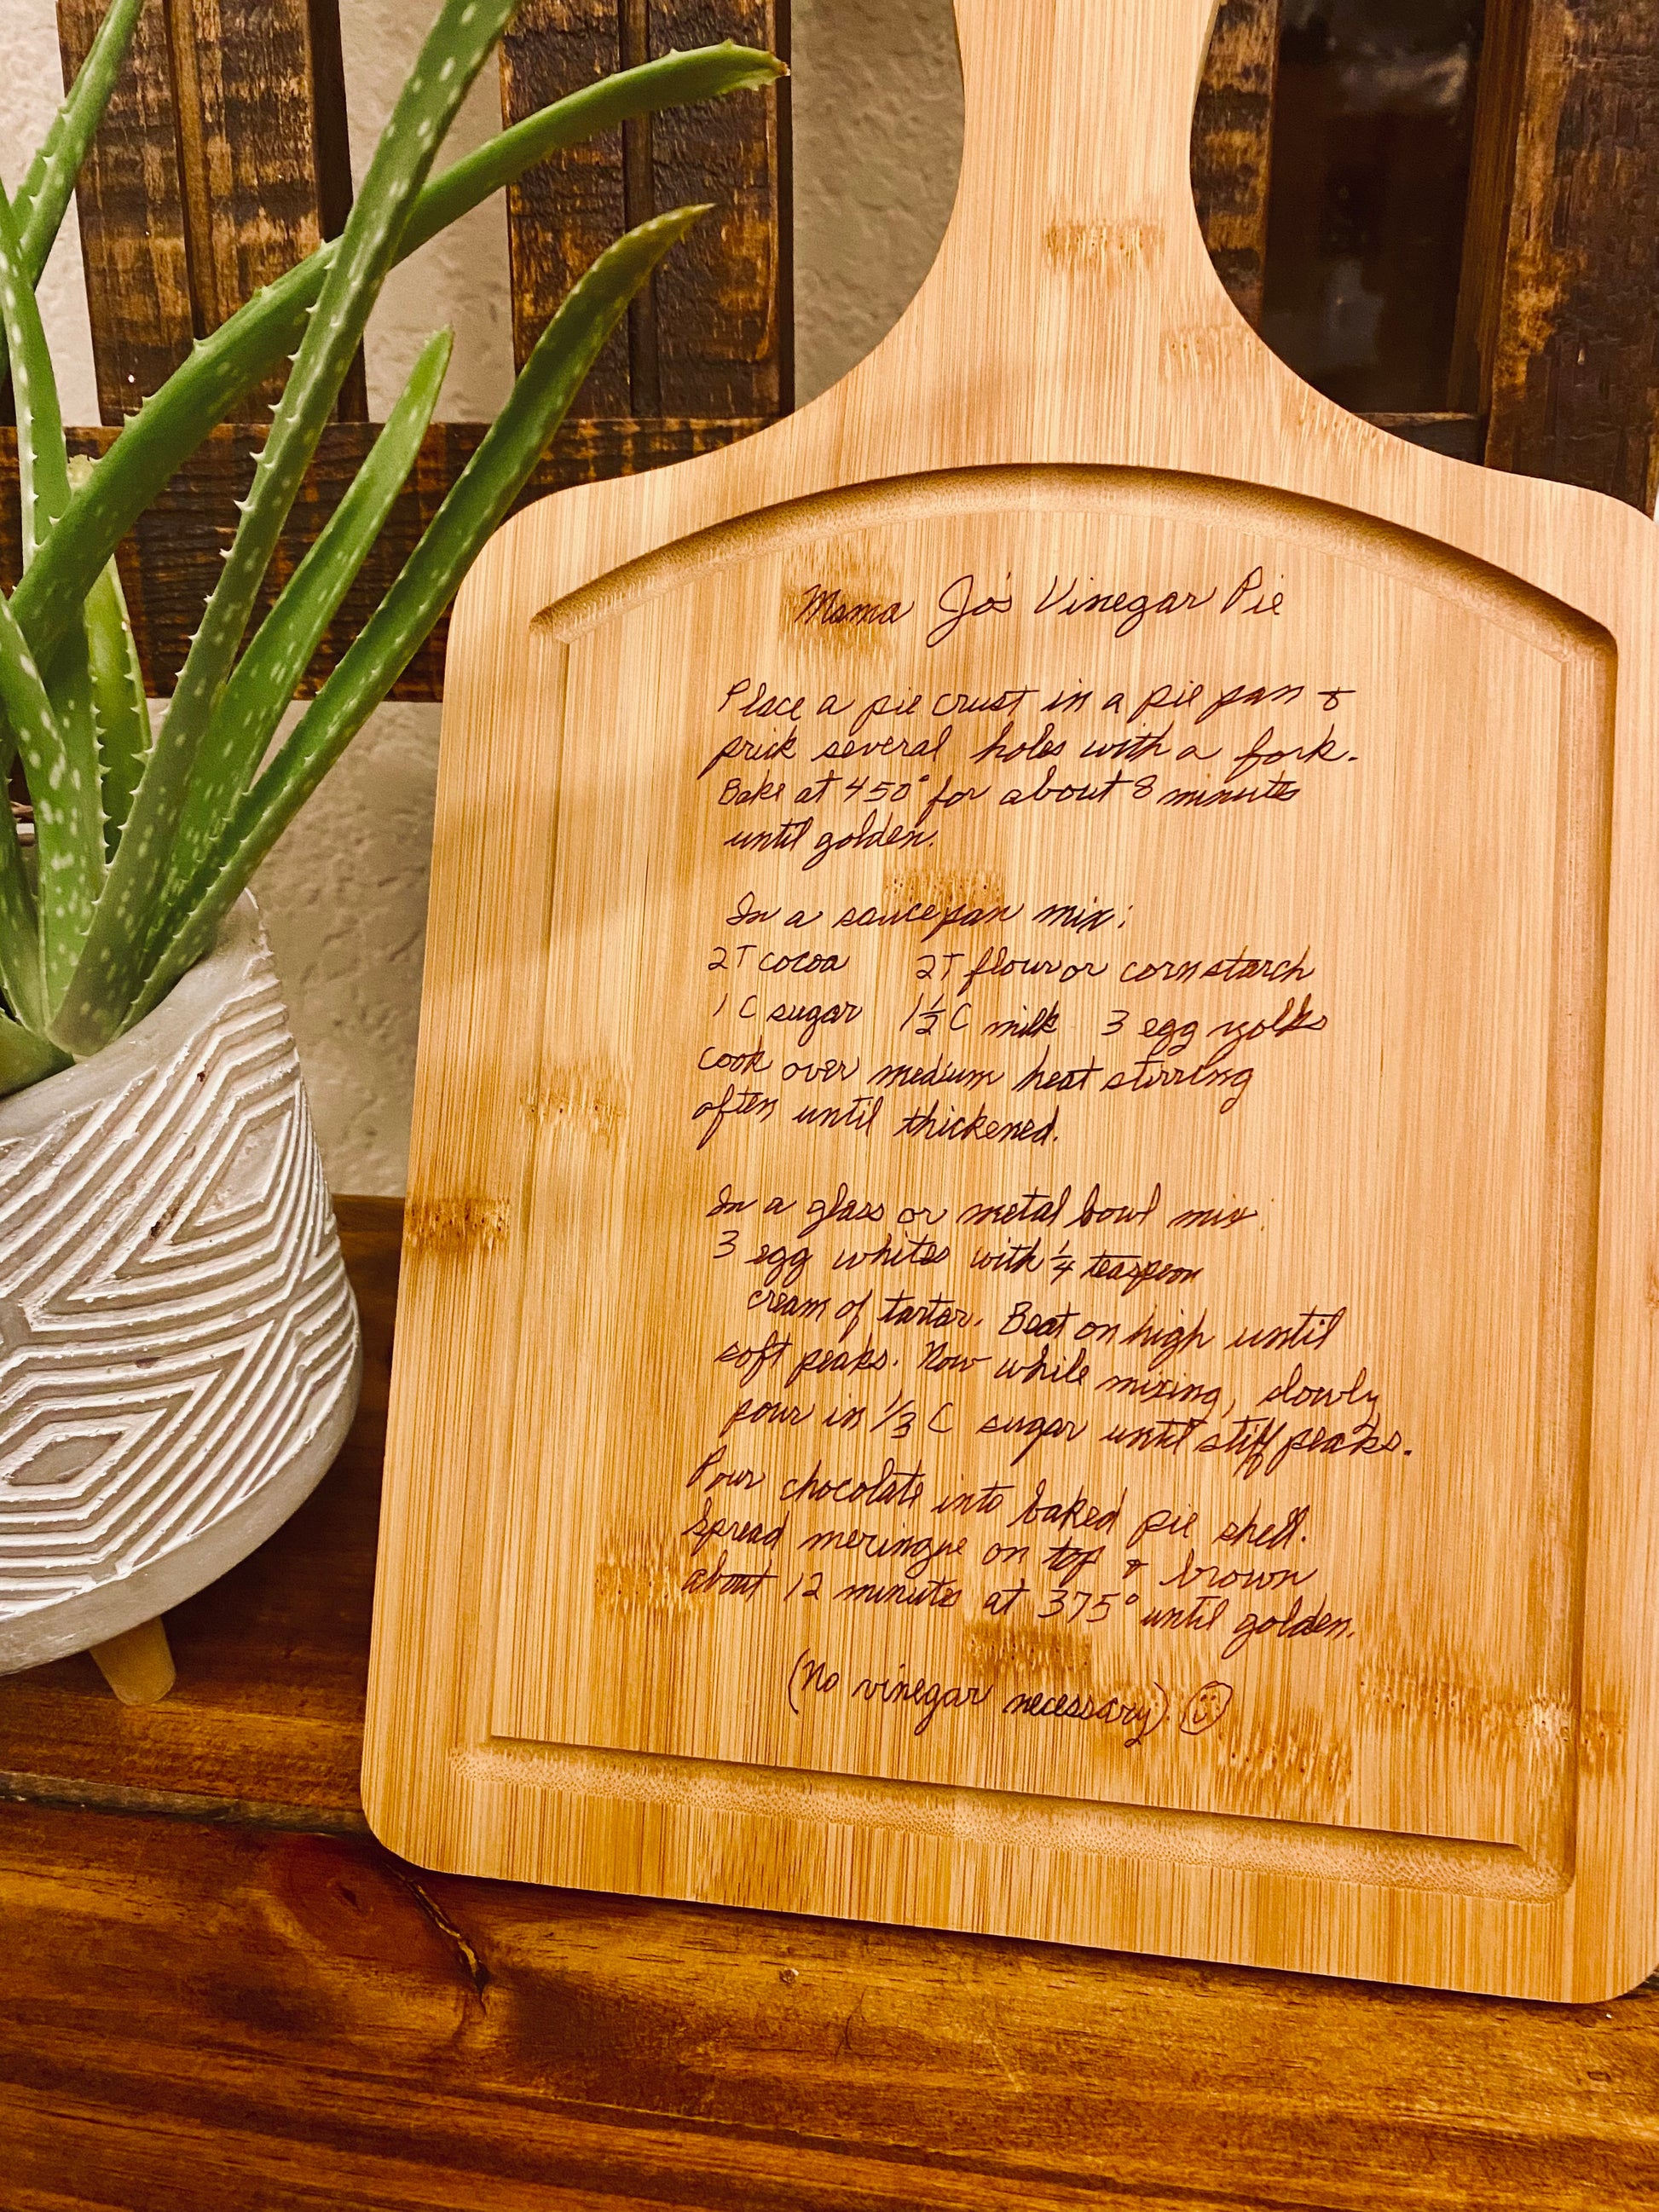 Mama Jo's Vinegar Pie
Place a pie crust in a pie pan &
prick several holes with a fork.
Bake at 450° for about 8 minutes
until golden.
In a saucepan mix:
2T cocoa 2T flour or cornstarch
1 C sugar 1½ C milk 3 egg yolks
Cook over medium heat stirring
often until thickened.
In a glass or metal bowl mix
3 egg whites with ¼ teaspoon
cream of tartar. Beat on high until
soft peaks. Now while mixing, slowly
pour in 1/3 C sugar until stiff peaks.
Pour chocolate into baked pie shell.
Spread meringue on top & brown
about 12 minutes at 375° until golden.
(No vinegar necessary) ☺